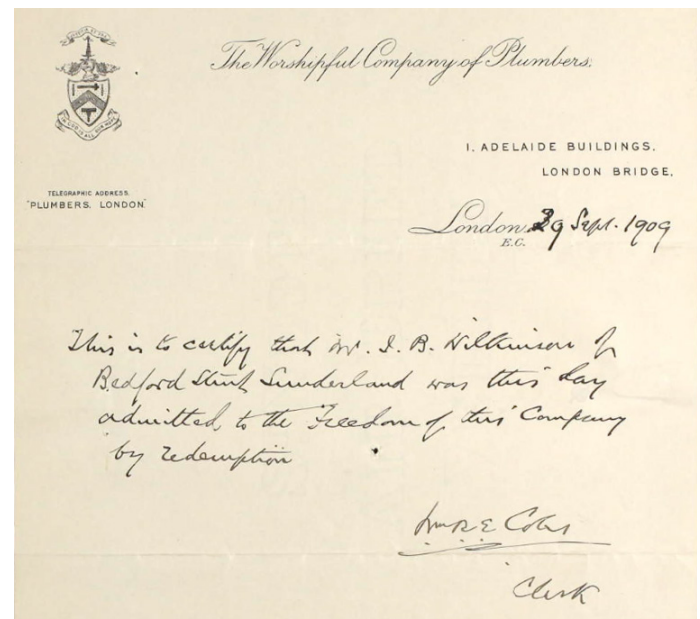 The Worshipful Company of Plumbers.
1, ADELAIDE BUILDINGS,
LONDON BRIDGE,
TELEGRAPHIC ADDRESS,
"PLUMBERS, LONDON."
London, 29 Sept. 1909
E.C.
IN GOD IS ALL OUR HOPE
This is to certify that Mr. I. B. Wilkinson of
Bedford Street Sunderland was this day
admitted to the Freedom of this Company
by redemption
Wm R E Coles
Clerk